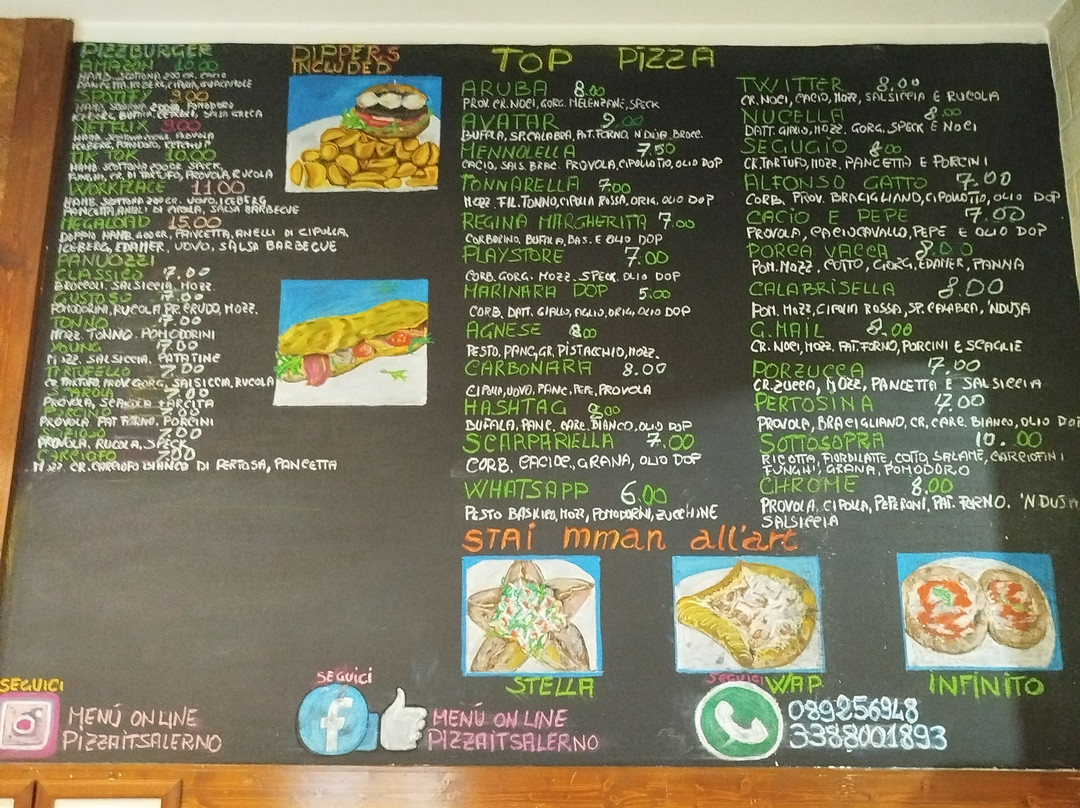 PIZZBURGER
AMAZON 10.00
HAMB. SCOTTONA 200 GR. CACIO
PANCETTA, ICEBERG, CIPOLLA, GUACAMOLE
9.00
HAMB. SCOTTONA 200GR. POMODORO
ICEBERG, BUFALA, CETRIOLI, SALSA GRECA
9.00
HAMB. SCOTTONA 200GR. PROVOLA
ICEBERG, POMODORO, KETCHUP
TIK TOK 10.00
HAMB. SCOTTONA 200 GR. SPECK,
FUNGHI, CR. DI TARTUFO, PROVOLA, RUCOLA
WORKPLACE 11.00
HAMB. SCOTTONA 200 GR. UOVO, ICEBERG
PANCETTA, ANELLI DI CIPOLLA, SALSA BARBECUE
MEGALOAD 15.00
DOPPIO HAMB. 400 GR. PANCETTA, ANELLI DI CIPOLLA,
ICEBERG, EDAMER, UOVO, SALSA BARBECUE
PANUOZZI
CLASSICO 7.00
BROCCOLI, SALSICCIA, MOZZ.
GUSTOSO 7.00
POMODORINI, RUCOLA, PR. CRUDO, MOZZ.
TONNO 7.00
MOZZ. TONNO. POMODORINI
YOUNG 7.00
MOZZ. SALSICCIA, PATATINE
TARTUFELLO 7.00
CR. TARTUFO, PROV. GORG., SALSICCIA, RUCOLA
7.00
PROVOLA, SCAROLA
7.00
PROVOLA PAT. FORNO. PORCINI
7.00
PROVOLA, RUCOLA, SPECK
CARCIOFO 7.00
MOZZ. CR. CARCIOFO BIANCO DI PERTOSA, PANCETTA
DIPPERS
INCLUDED
TOP PIZZA
ARUBA 8.00
PROV. CR. NOCI, GORG. MELENZANE, SPECK
AVATAR 9.00
BUFALA, SP. CALABRA, PAT. FORNO, N'DUJA, BROCC.
MENNOLELLA 7.50
CACIO, SALS. BRAC. PROVOLA, CIPOLLOTTO, OLIO DOP
TONNARELLA 7.00
MOZZ. FIL. TONNO, CIPOLLA ROSSA, ORIG., OLIO DOP
REGINA MARGHERITA 7.00
CORBARINO, BUFALA, BAS. E OLIO DOP
PLAYSTORE 7.00
CORB. GORG. MOZZ. SPECK. OLIO DOP
MARINARA DOP 5.00
CORB. DATT. GIALLO, AGLIO, ORIG., OLIO DOP
AGNESE 8.00
PESTO, PANC, GR. PISTACCHIO, MOZZ.
CARBONARA 8.00
CIPOLLA, UOVO, PANC, PEPE, PROVOLA
HASHTAG 8.00
BUFALA, PANC. CARC. BIANCO, OLIO DOP
SCARPARIELLA 7.00
CORB. CACIOC., GRANA, OLIO DOP
WHATSAPP 6.00
PESTO BASILICO, MOZZ, POMODORINI, ZUCCHINE
TWITTER 8.00
CR. NOCI, CACIO, MOZZ, SALSICCIA E RUCOLA
NUCELLA 8.00
DATT. GIALLO, MOZZ. GORG. SPECK E NOCI
SEGUGIO 8.00
CR. TARTUFO, MOZZ, PANCETTA E PORCINI
ALFONSO GATTO 7.00
CORB. PROV. BRACIGLIANO, CIPOLLOTTO, OLIO DOP
CACIO E PEPE 7.00
PROVOLA, CACIOCAVALLO, PEPE E OLIO DOP
PORCA VACCA 8.00
POM. MOZZ, COTTO, GORG, EDAMER, PANNA
CALABRISELLA 8.00
POM. MOZZ, CIPOLLA ROSSA, SP. CALABRA, 'NDUJA
G.MAIL 8.00
CR. NOCI, MOZZ, PAT. FORNO, PORCINI E SCAGLIE
PORZUCCA 7.00
CR. ZUCCA, MOZZ, PANCETTA E SALSICCIA
PERTOSINA 7.00
PROVOLA, BRACIGLIANO, CR. CARC. BIANCO, OLIO DOP
SOTTOSOPRA 10.00
RICOTTA, FIORDILATE, COTTO, SALAME, CARCIOFINI
FUNGHI, GRANA, POMODORO
CHROME 8.00
PROVOLA, CIPOLLA, PEPERONI, PAT. FORNO. 'NDUJA
SALSICCIA
STAI mman all'art
STELLA
WAP
INFINITO
SEGUICI
MENÚ ONLINE
PIZZAITSALERNO
SEGUICI
f
MENÚ ONLINE
PIZZAITSALERNO
SEGUICI
089256948
3388001893